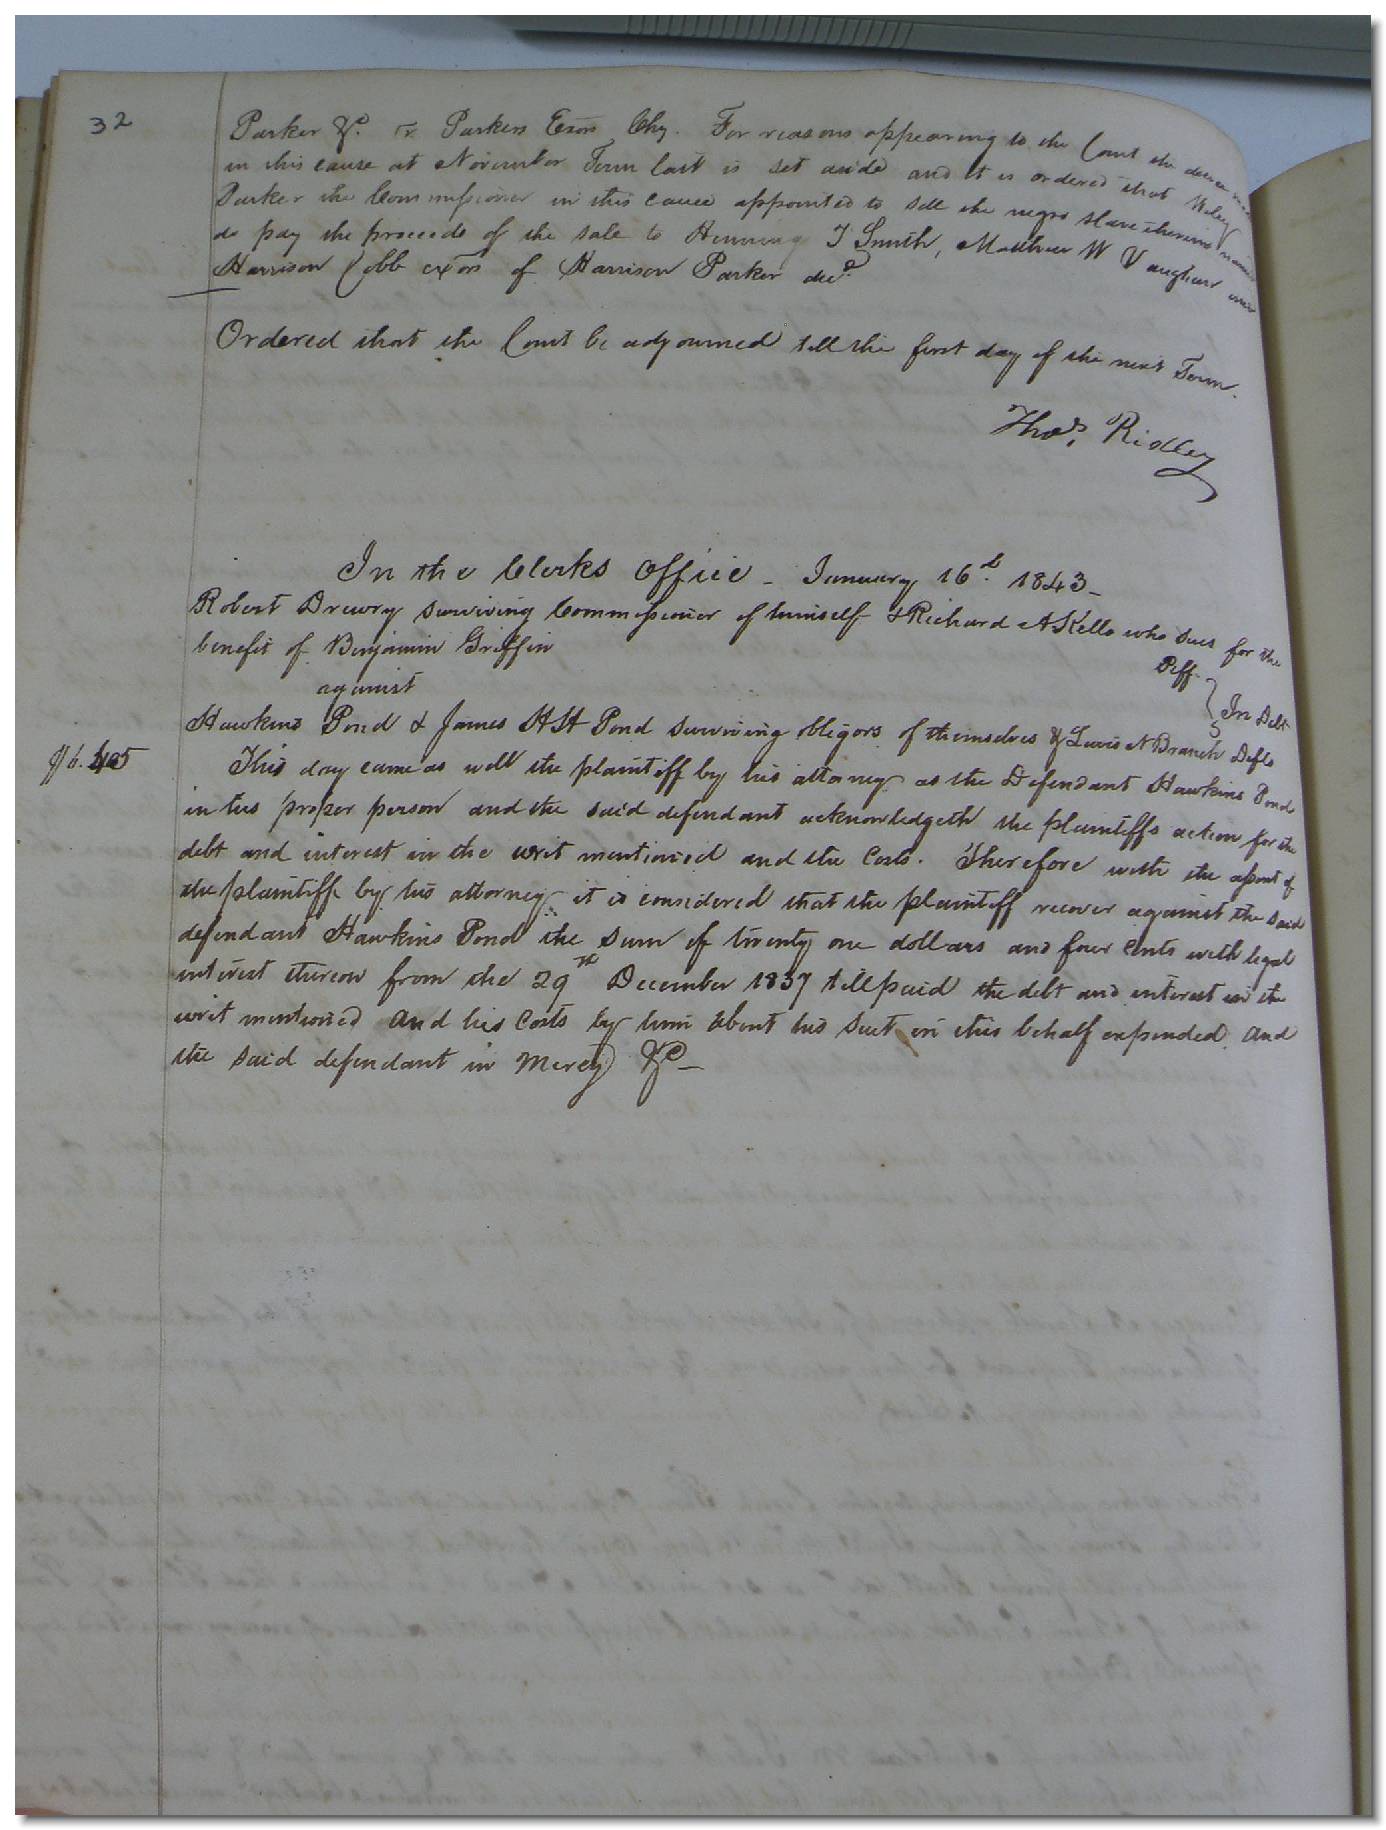 32
Parker &c. vs Parkers Exors Chy. For reasons appearing to the Court the decree made
in this cause at November Term last is set aside and it is ordered that Wiley
Parker the Commissioner in this cause appointed to sell the negro slave therein named
do pay the proceeds of the sale to Henning T Smith, Matthew W Vaughan and
Harrison Cobb exors of Harrison Parker decd.
Ordered that the Court be adjourned till the first day of the next Term.
Thos. Ridley
In the Clerks Office - January 16th. 1843 -
Robert Drewry surviving Commissioner of himself & Richard A Kello who sues for the
benefit of Benjamin Griffin Plff.
against In Debt
Hawkins Pond & James H H Pond surviving obligors of themselves & Lewis N Branch Defts
This day came as well the plaintiff by his attorney as the Defendant Hawkins Pond
in his proper person and the said defendant acknowledgeth the plaintiffs action for the
debt and interest in the writ mentioned and the costs. Therefore with the assent of
the plaintiff by his attorney it is considered that the plaintiff recover against the said
defendant Hawkins Pond the sum of twenty one dollars and four cents with legal
interest thereon from the 29th December 1837 till paid the debt and interest in the
writ mentioned and his costs by him about his suit in this behalf expended. And
the said defendant in Mercy &c -